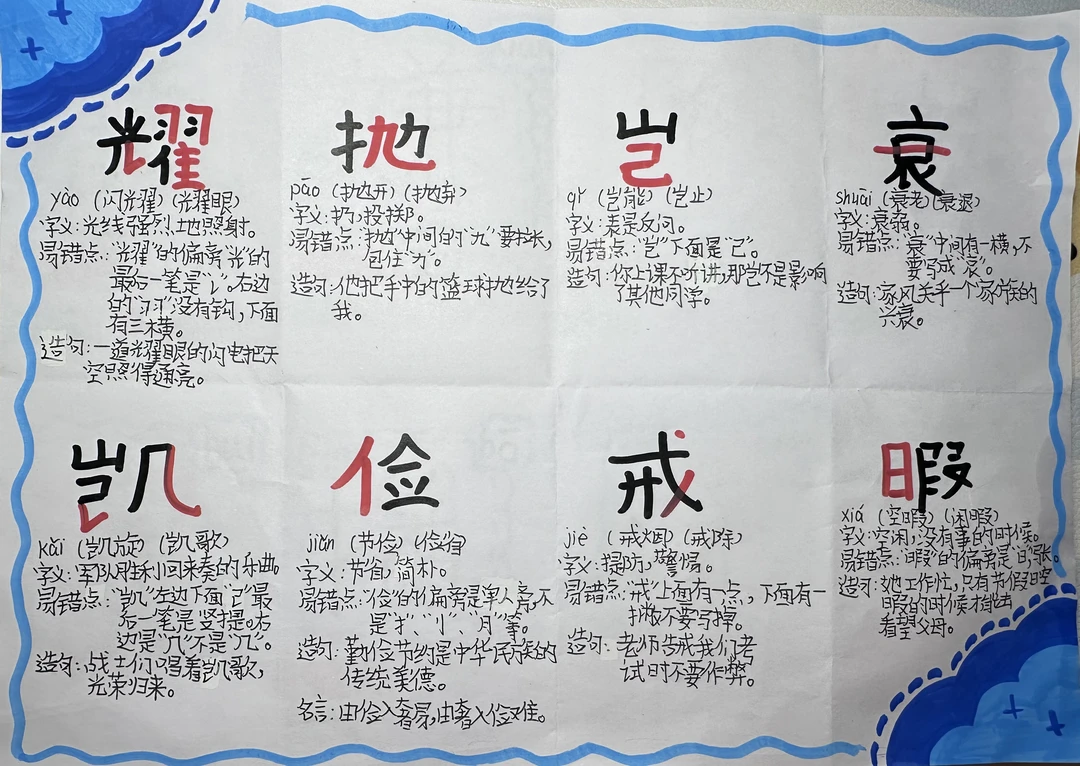 耀
yào（闪光耀）（光耀眼）
字义：光线强烈地照射。
易错点：“光耀”的偏旁“光”的
最后一笔是“㇙”。右边
的“羽”没有钩，下面
有三横。
造句：一道光耀眼的闪电把天
空照得通亮。
抛
pāo（抛开）（抛弃）
字义：扔，投掷。
易错点：“抛”中间的“九”要拉长，
包住“力”。
造句：他把手中的篮球抛给了
我。
岂
qǐ（岂能）（岂止）
字义：表是反问。
易错点：“岂”下面是“己”。
造句：你上课不听讲，那岂不是影响
了其他同学。
衰
shuāi（衰老）（衰退）
字义：衰弱。
易错点：“衰”中间有一横，不
要写成“哀”。
造句：家风关乎一个家族的
兴衰。
凯
kǎi（凯旋）（凯歌）
字义：军队胜利回来奏的乐曲。
易错点：“凯”左边下面“己”最
后一笔是竖提。右
边是“几”不是“几”。
造句：战士们唱着凯歌，
光荣归来。
俭
jiǎn（节俭）（俭省）
字义：节省，简朴。
易错点：“俭”的偏旁是单人旁，不
是“扌”、“忄”、“月”等。
造句：勤俭节约是中华民族的
传统美德。
名言：由俭入奢易，由奢入俭难。
戒
jiè（戒烟）（戒除）
字义：提防，警惕。
易错点：“戒”上面有一点，下面有一
撇不要写掉。
造句：老师告戒我们考
试时不要作弊。
暇
xiá（空暇）（闲暇）
字义：空闲，没有事的时候。
易错点：“暇”的偏旁是“日”，
造句：她工作忙，只有节假日空
暇的时候才能去
看望父母。